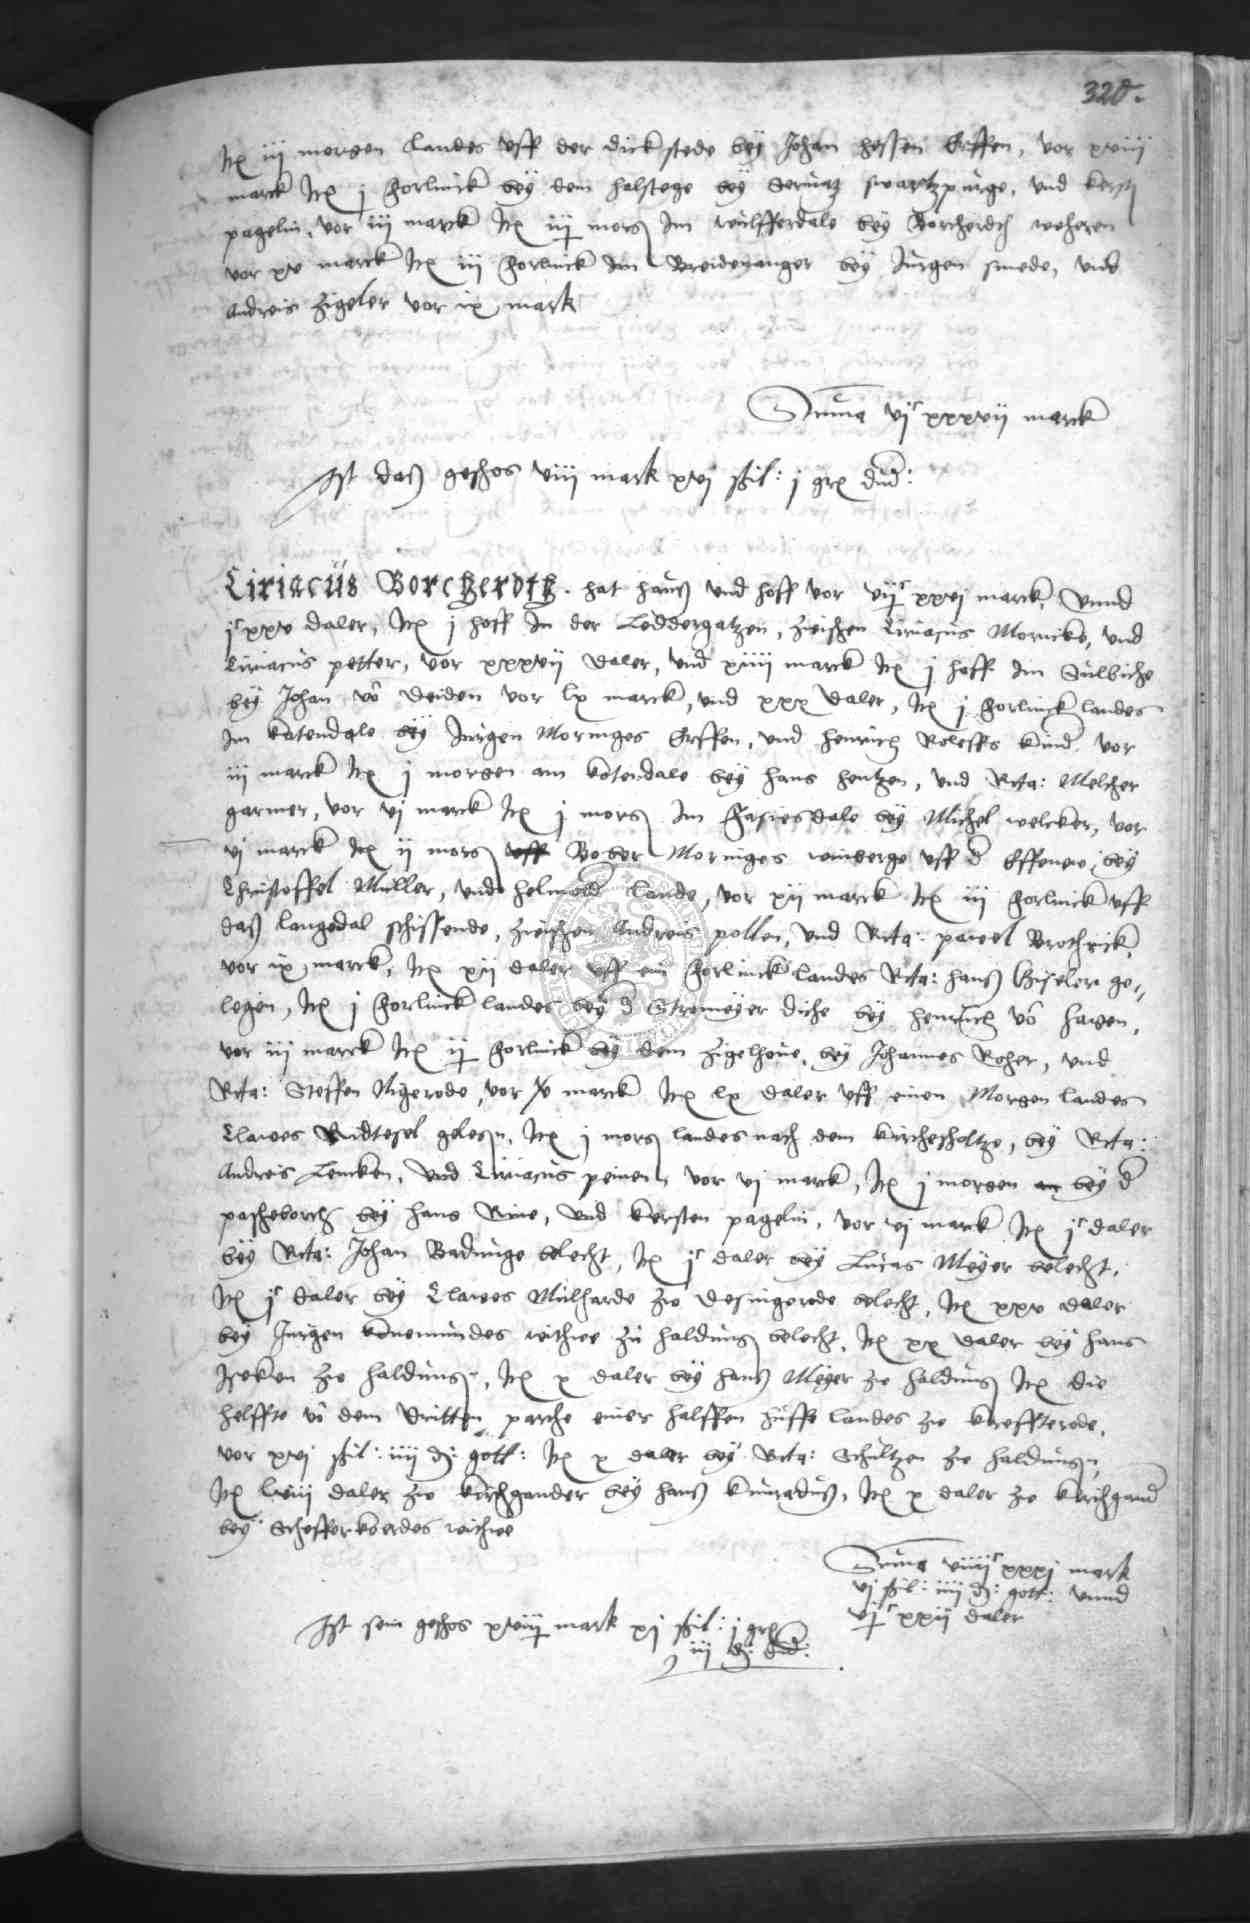 320.
Itē iij morgen landes vff der dickstede bey Johan hessen Erffen, vor xviij
marck Itē j Gorlinck bey dem halstege bey Servatz swartzpurge, vnd Kersten
pagelin, vor iij marck Itē iij morg Im wulfferdale bey Borcherdt
vor xv marck Itē iij Gorlinck Im Breidenanger bey Jurgen smede, vnd
Andreis Zigeler vor ix mark
Suma vjc xxxvij marck
Ist daß geschos viij mark xvj schil: j gr
Ciriacus Borcheroth. hat hauß vnd hoff vor xxvj marck, Vnnd
jc xxv daler, Itē j hoff In der Leddergatzen, zwischen Ciriacus Mornicke, vnd
Ciriacus petter, vor xxxvij daler, vnd xiiij marck Itē j hoff Im Sulbiche
bey Johan vō Deiden vor lx marck, vnd xxx daler, Itē j Gorlinck landes
Im katendale bey Jurgen Moringes Erffen, vnd Henrich Roleffs kind vor
iij marck Itē j morgen am kotendale bey hans hentzen, vnd Rcta: Melcher
garmer, vor vj marck Itē j morg Im bey Michel welcker, vor
vj marck Itē ij morg vff Bober Moringes winberge vff d bey
Christoffel Muller, vnd lande, vor xij marck Itē iij Gorlinck vff
daß langedal schissende, zwischen Andreis pollen, vnd Rcta: pawel Brothrick,
vor ix marck, Itē xij daler vff ein Gorlinck landes Rcta: hanß Giseler ge-
legen, Itē j Gorlinck landes bey d Stromeyer diche bey henrich vō hagen,
vor iij marck Itē ij Gorlinck bey dem Zigelhoue, bey Johannes Roher, vnd
Rcta: Steffen Ilgerode, vor xv marck Itē lx daler vff einen Morgen landes
Clawes Ridtesel gelegen, Itē j morg landes nach dem kircheholtze, bey Rcta:
Andreis Lencken, vnd Ciriacus peinen, vor vj marck, Itē j morgen bey d
pascheborch bey hans Rine, vnd Kersten pagelin, vor vj marck Itē jc daler
bey Rcta: Johan Badunge belecht, Itē jc daler bey Lucas Meyer belecht,
Itē jc daler bey Clawes Mulharde zw Desingerode belecht, Itē xxv daler
bey Jurgen konemundes withwe zu haldung belecht, Itē xx daler bey hans
Iseken zw haldung, Itē x daler bey hanß Meyer zw haldung Itē die
helffte vō dem dritten parche einer halffen huffe landes zw kreffterode,
vor xvj schil: iiij d: gott: Itē x daler bey Rcta: Schultzen zw haldung,
Itē lviij daler zw kirchgander bey hanß kunraduß, Itē x daler zw kirchgand
bey Schefferkordes withwe
Suma viiijc xxxj mark
vj schil: iiij d: gott: vnnd
vjc xxij daler
Ist sein geschos xviij mark xj schil: j gr
iij d: